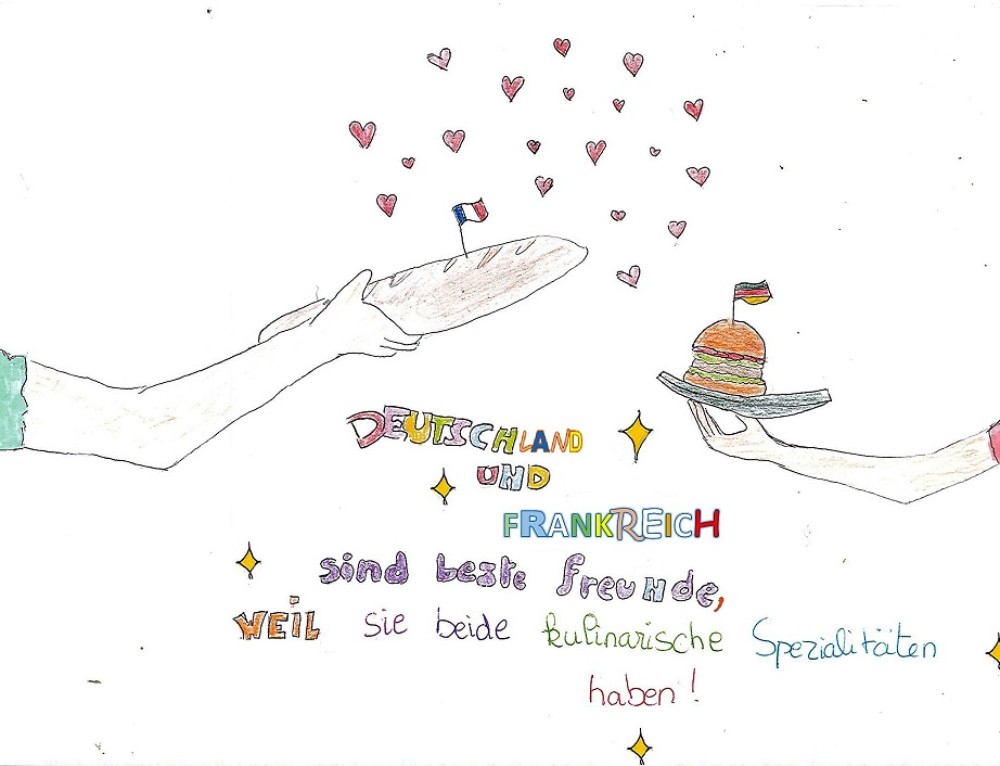 DEUTSCHLAND
UND
FRANKREICH
sind beste freunde,
WEIL sie beide kulinarische Spezialitäten
haben!